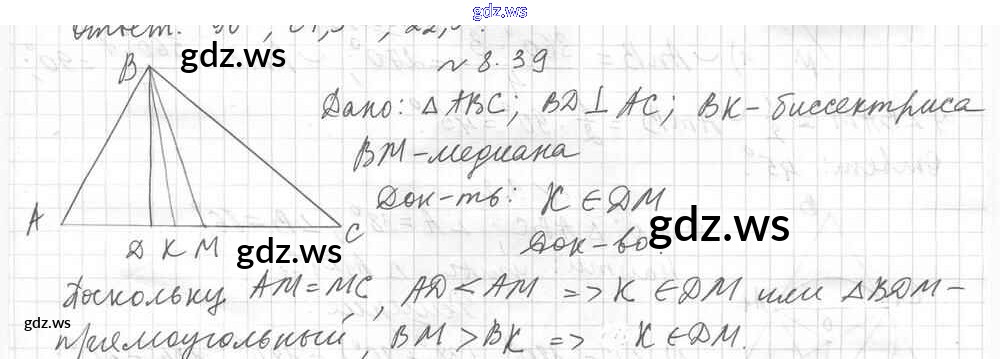 gdz.ws
Ответ: 90°, 67,5°, 22,5°.
gdz.ws
№ 8.39
B
Дано: △ABC; BD⊥AC; BK-биссектриса
BM-медиана
Док-ть: K∈DM
A Д K M C
gdz.ws gdz.ws
Док-во:
Поскольку AM=MC, AD<AM => K∈DM или △BDM-
gdz.ws
прямоугольный, BM>BK => K∈DM.